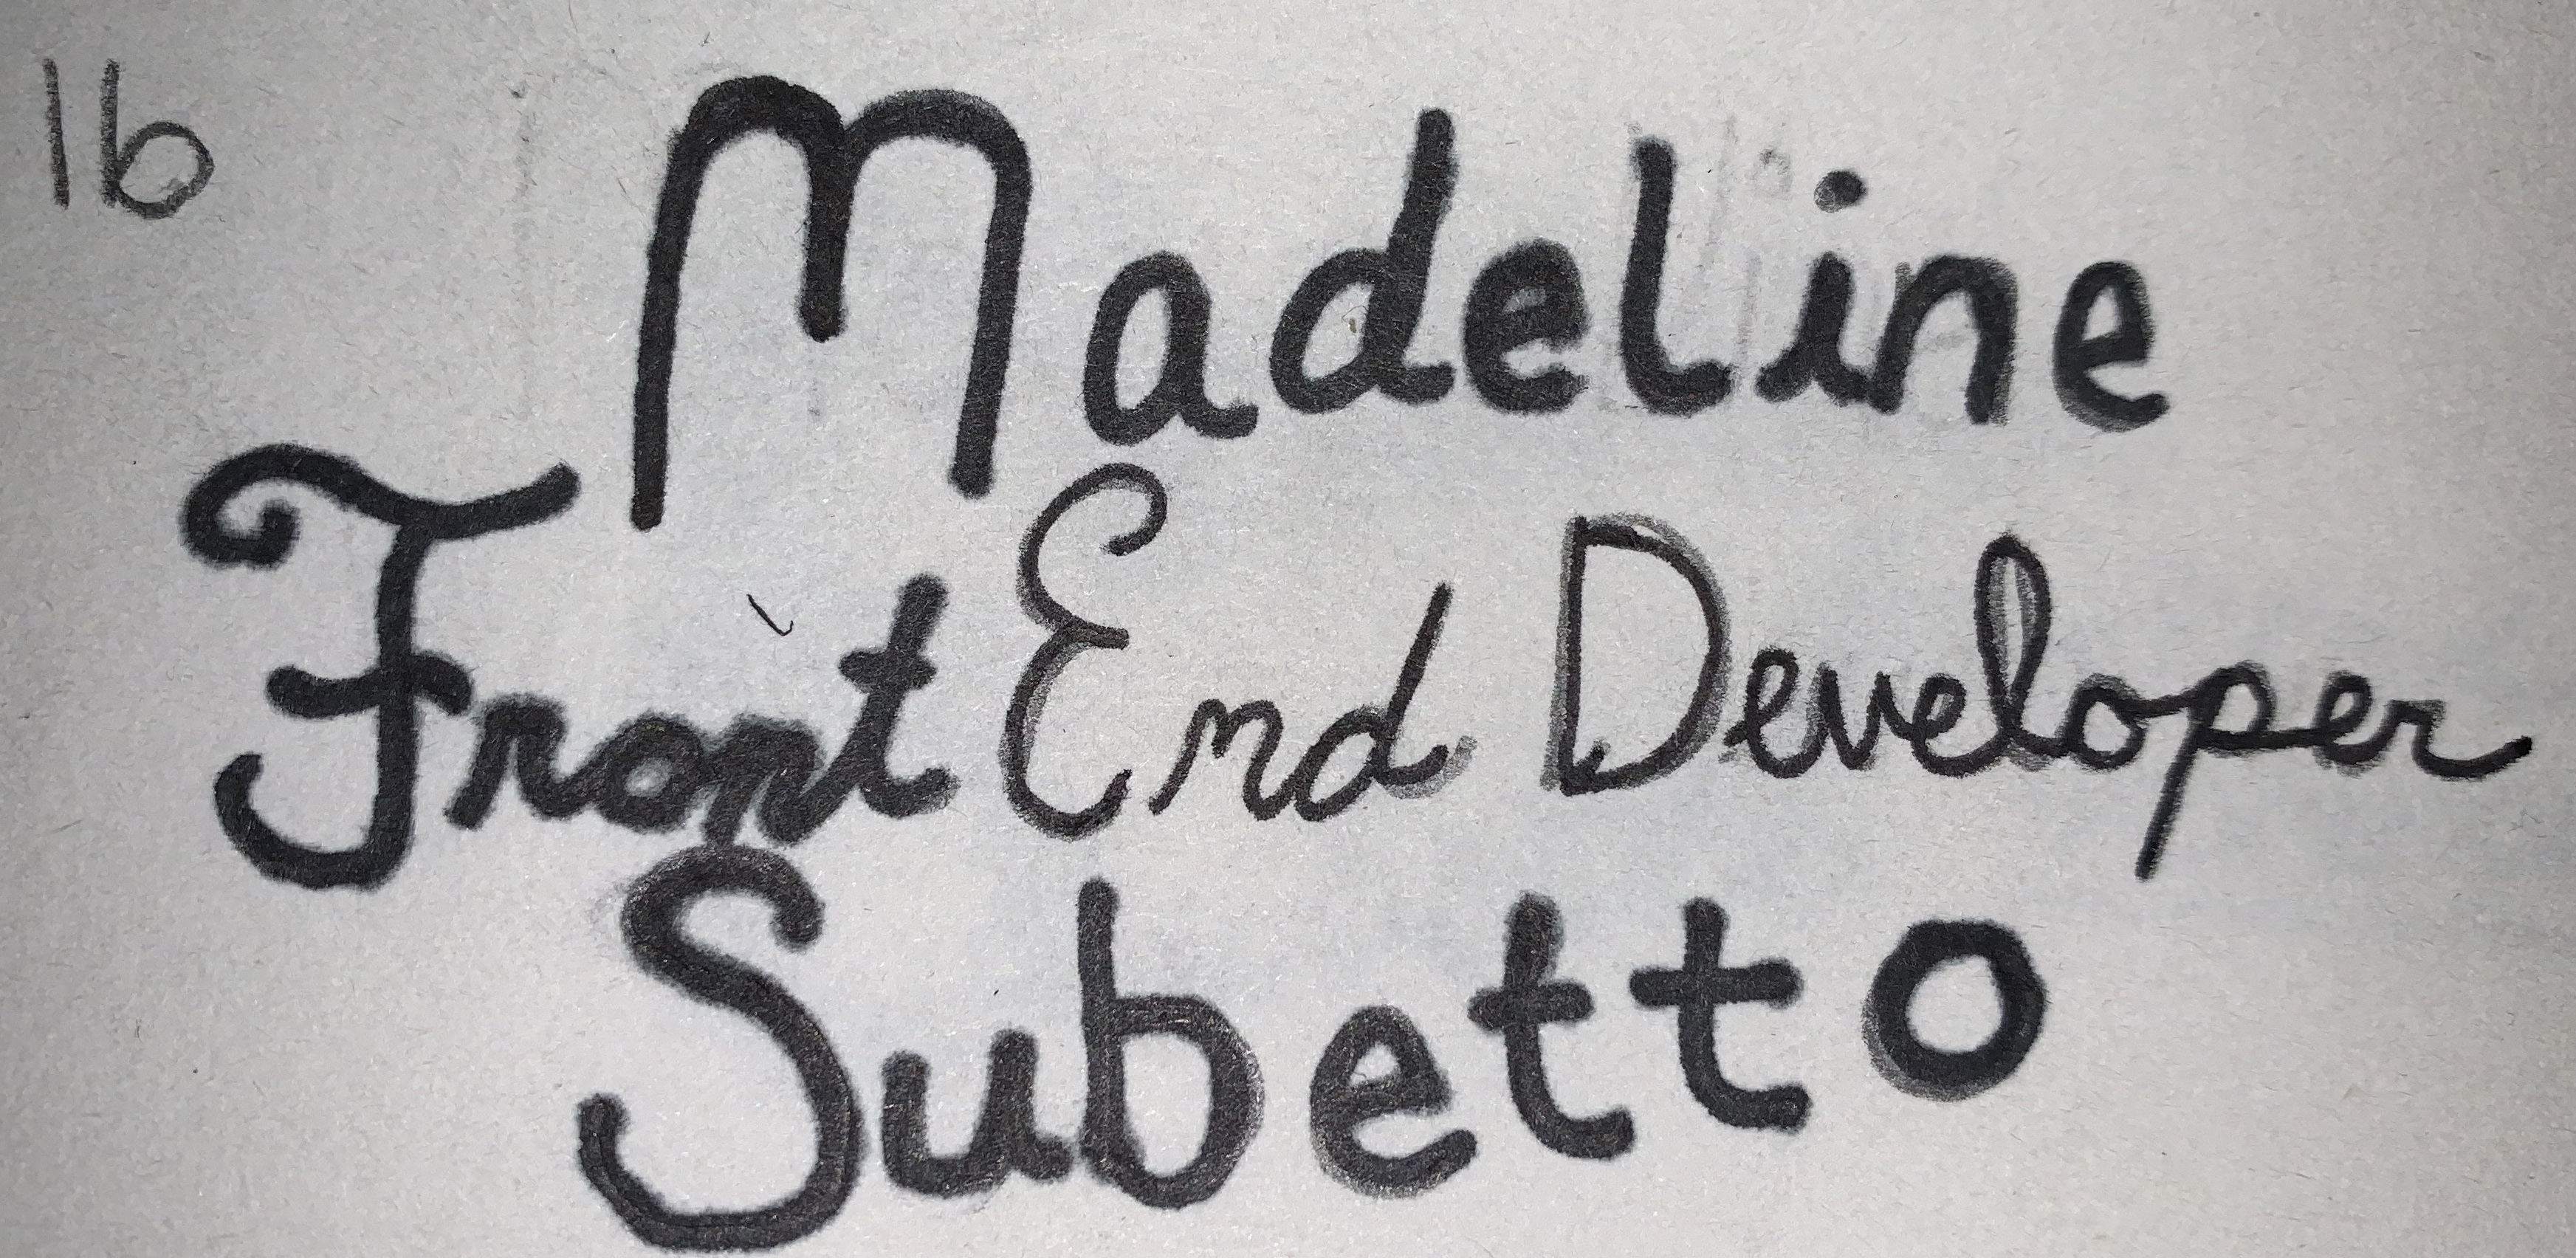 16
Madeline
Front End Developer
Subetto